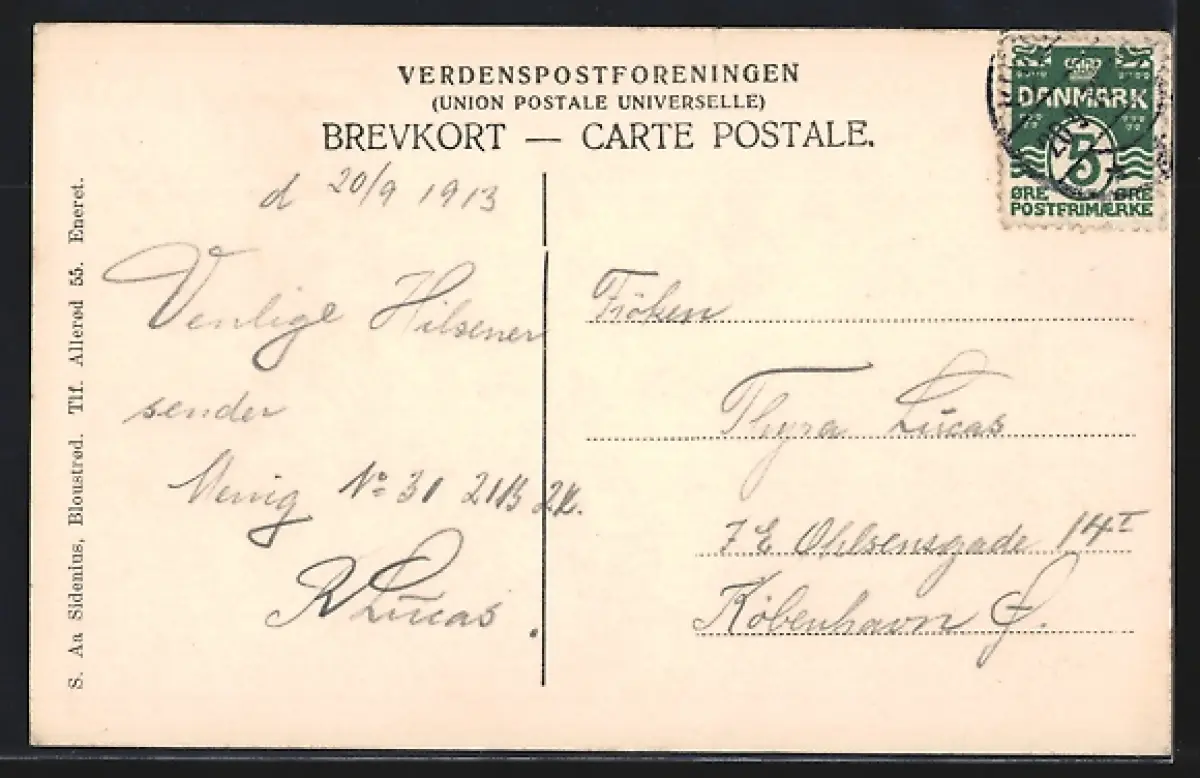 VERDENSPOSTFORENINGEN
(UNION POSTALE UNIVERSELLE)
BREVKORT — CARTE POSTALE.
DANMARK
5
ØRE ØRE
POSTFRIMÆRKE
S. Aa Sidenius, Bloustrød. Tlf. Allerød 55. Eneret.
d 20/9 1913
Venlige Hilsener
sender
Menig No 31 21B 2K.
R Lŭcas.
Fröken
Thyra Lŭcas
E Ohlsensgade 14 I
København Ø.